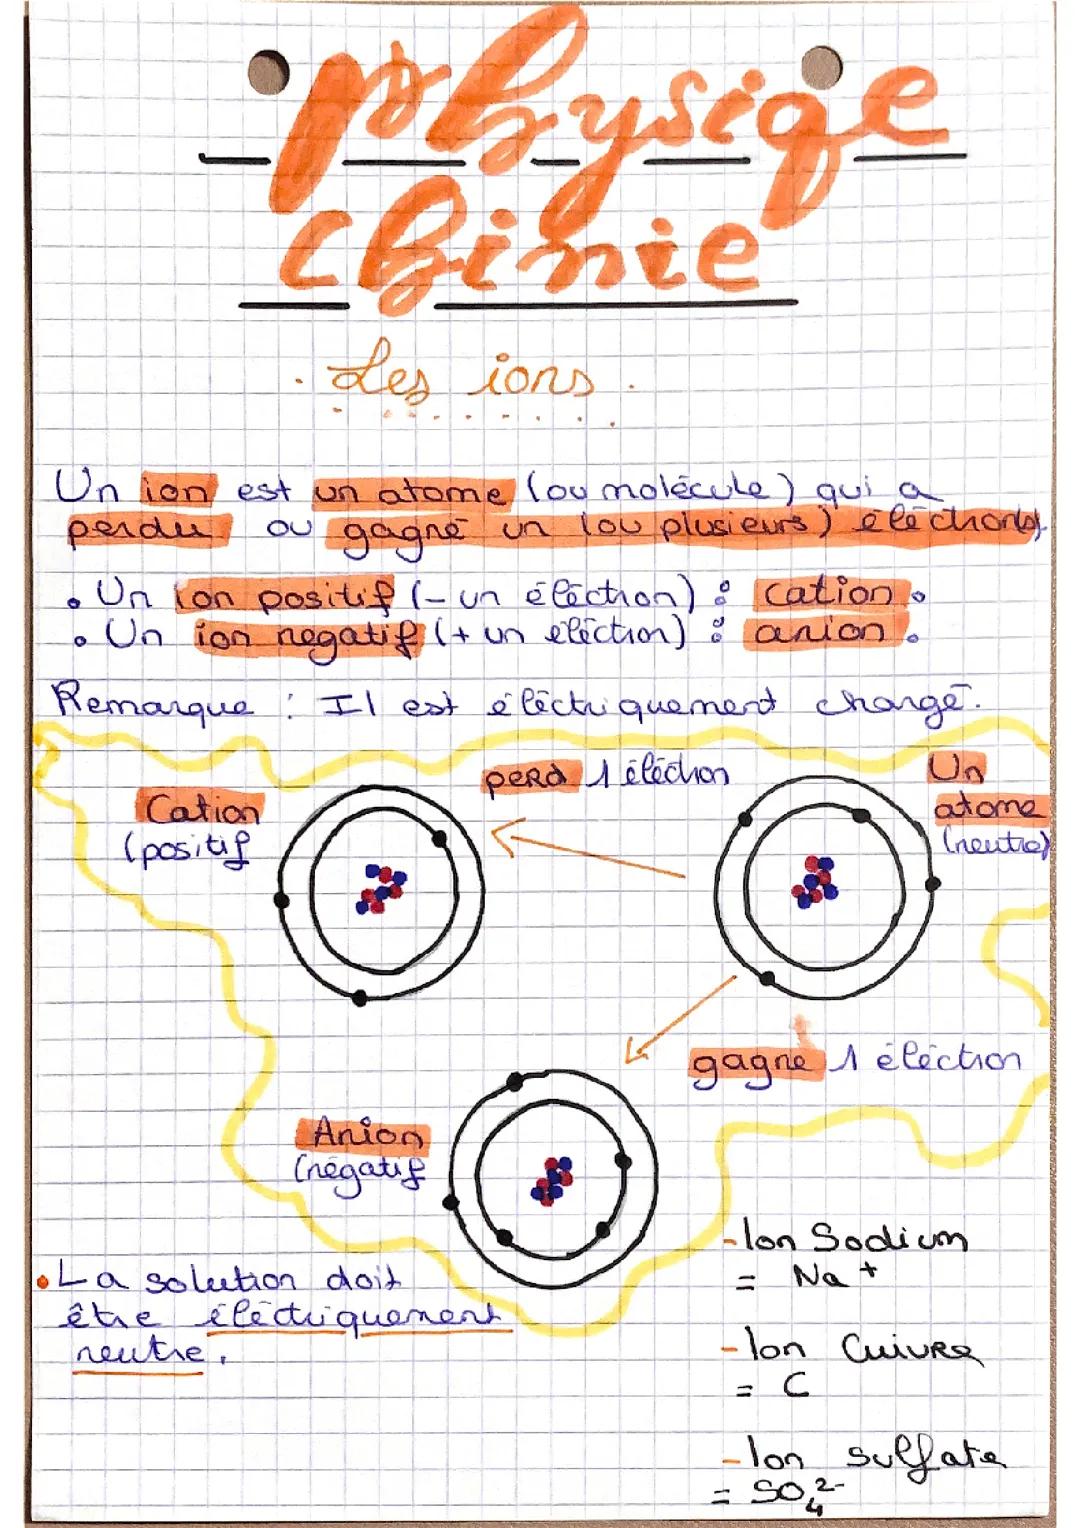 Physiqe
Chimie
. Les ions .
Un ion est un atome (ou molécule) qui a
perdu ou gagné un (ou plusieurs) éléctron(s).
• Un ion positif (- un éléctron) : cation.
• Un ion negatif (+ un eléctron) : anion.
Remarque : Il est éléctriquement chargé.
perd 1 éléctron
Un
atome
(neutre)
Cation
(positif
gagne 1 éléctron
Anion
(négatif
- Ion Sodium
= Na +
• La solution doit
être éléctriquement
neutre.
- Ion Cuivre
= C
- Ion sulfate
= SO₄²⁻